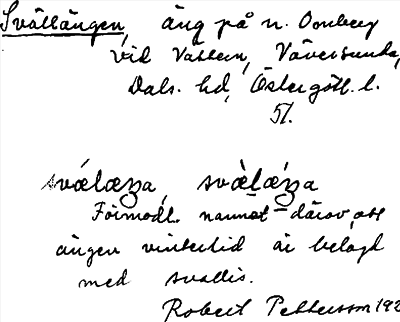 Svällängen, äng på n. Omberg
vid Vättern, Väversunda,
Dals. hd, Östergötl. l.
51.
svǽlæŋa, svæ̀lǽŋa
Förmodl. namnet därav att
ängen vintertid är belagd
med svallis.
Robert Pettersson 192